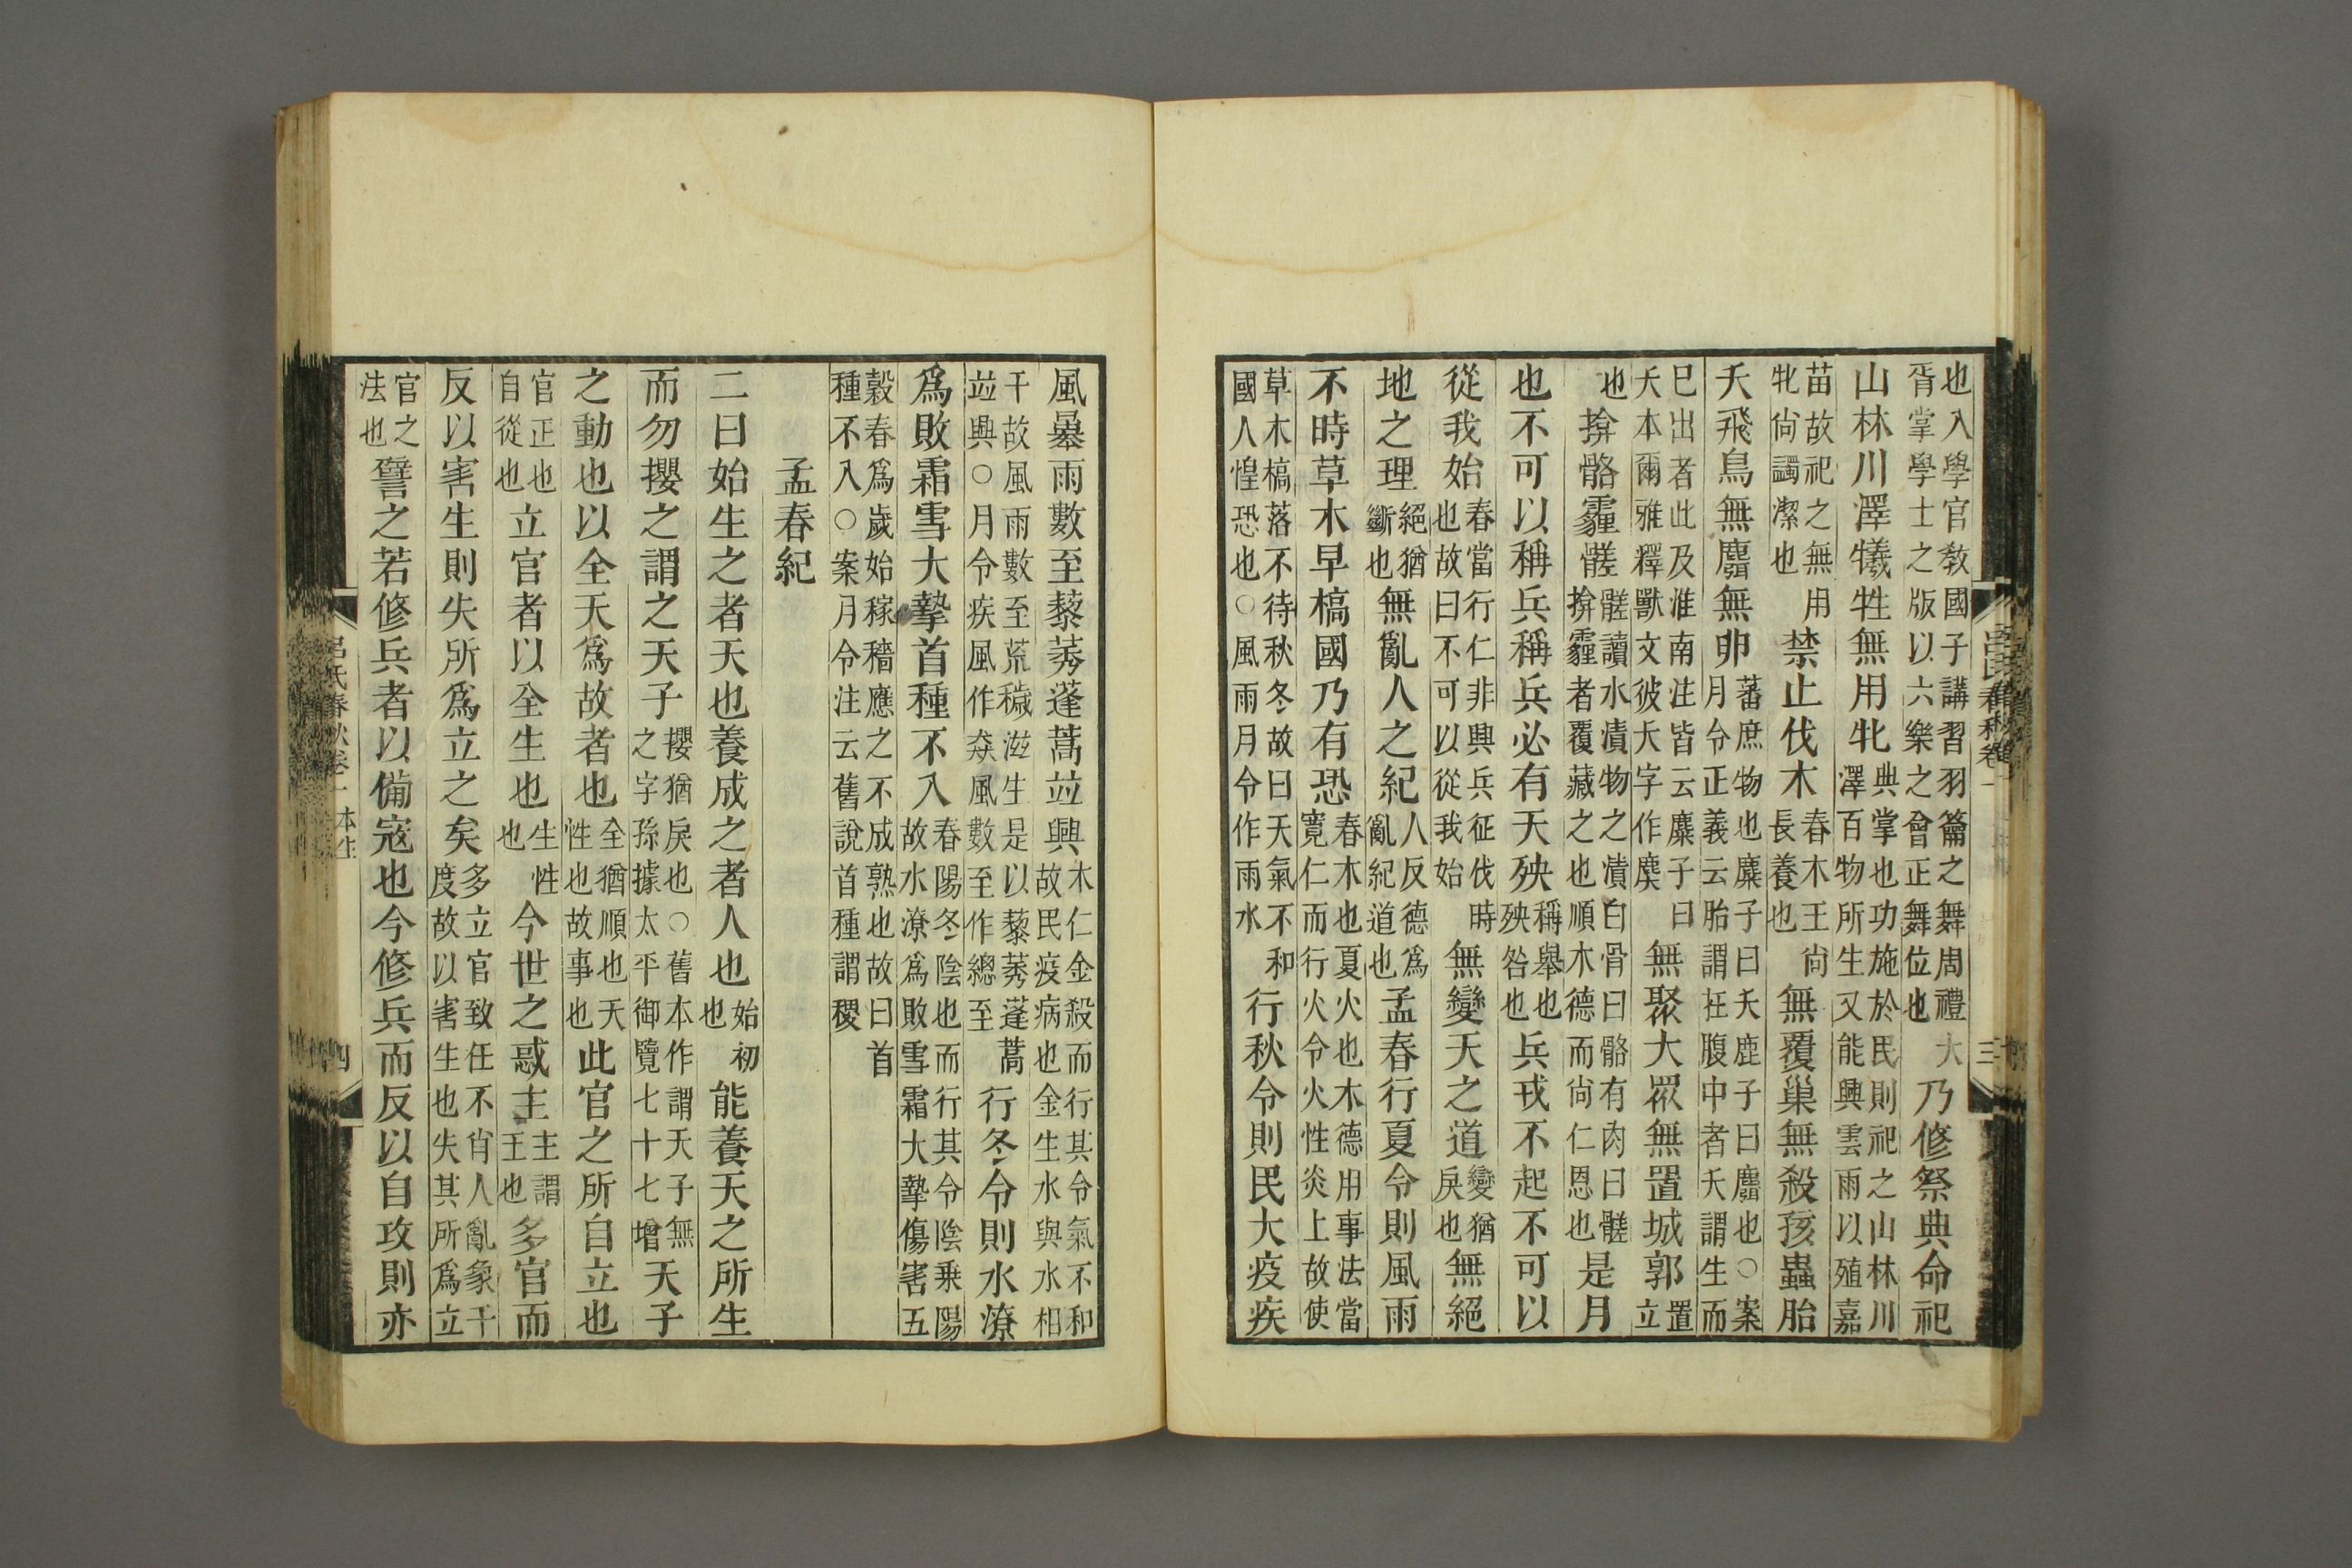 也入學官敎國子講習羽籥之舞周禮大胥掌學士之版以六樂之會正舞位也乃修祭典命祀
山林川澤犧牲無用牝典掌也功施於民則祀之山林川澤百物所生又能興雲雨以殖嘉
苗故祀之無用牝尙蠲潔也禁止伐木春木王尙長養也無覆巢無殺孩蟲胎
夭飛鳥無麛無卵蕃庶物也麋子曰夭鹿子曰麛也○案月令正義云胎謂在腹中者夭謂生而
已出者此及淮南注皆云麋子曰夭本爾雅釋獸文彼夭字作䴠無聚大眾無置城郭置立
也揜骼霾髊髊讀水漬物之漬白骨曰骼有肉曰髊揜霾者覆藏之也順木德而尙仁恩也是月
也不可以稱兵稱兵必有天殃稱舉也殃咎也兵戎不起不可以
從我始春當行仁非興兵征伐時也故曰不可以從我始無變天之道變猶戾也無絕
地之理絕猶斷也無亂人之紀人反德爲亂紀道也孟春行夏令則風雨
不時草木早槁國乃有恐春木也夏火也木德用事法當寬仁而行火令火性炎上故使
草木槁落不待秋冬故曰天氣不和國人惶恐也○風雨月令作雨水行秋令則民大疫疾
呂氏春秋卷一
三
風暴雨數至藜莠蓬蒿竝興木仁金殺而行其令氣不和故民疫病也金生水與水相
干故風雨數至荒穢滋生是以藜莠蓬蒿竝興○月令疾風作猋風數至作總至行冬令則水潦
爲敗霜雪大摯首種不入春陽冬陰也而行其令陰乘陽故水潦爲敗雪霜大摯傷害五
穀春爲歲始稼穡應之不成熟也故曰首種不入○案月令注云舊說首種謂稷
孟春紀
二曰始生之者天也養成之者人也始初也能養天之所生
而勿攖之謂之天子攖猶戾也○舊本作謂天子無之字孫據太平御覽七十七增天子
之動也以全天爲故者也全猶順也天性也故事也此官之所自立也
官正也自從也立官者以全生也生性也今世之惑主主謂王也多官而
反以害生則失所爲立之矣多立官致任不肖人亂象干度故以害生也失其所爲立
官之法也譬之若修兵者以備寇也今修兵而反以自攻則亦
呂氏春秋卷一 本生
四